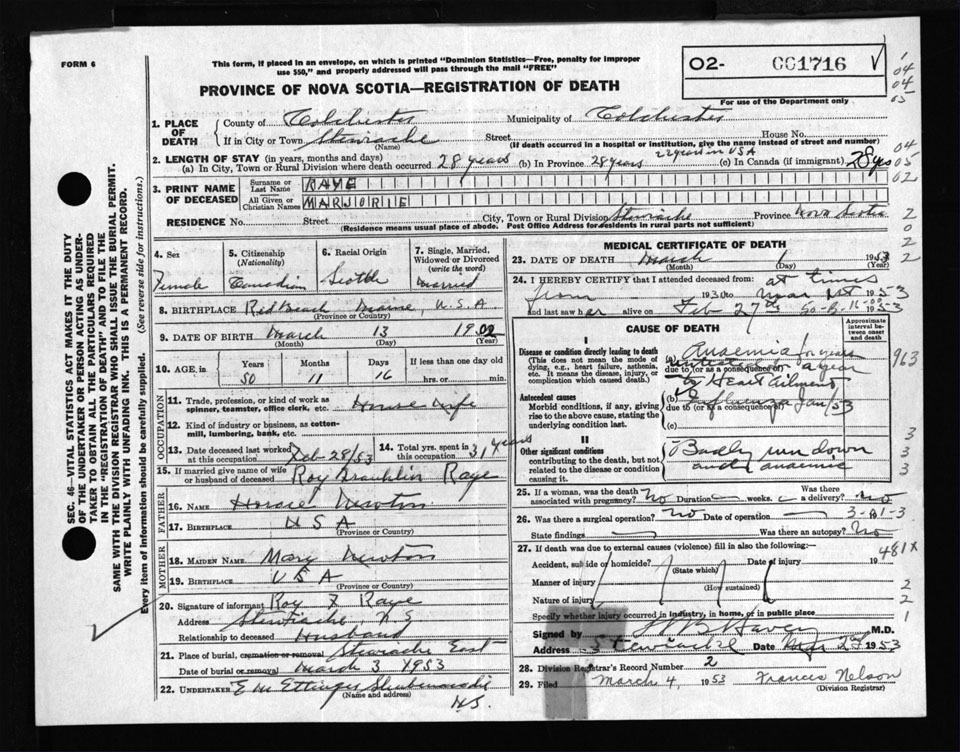 FORM 6
This form, if placed in an envelope, on which is printed "Dominion Statistics—Free, penalty for improper
use $50," and properly addressed will pass through the mail "FREE"
O2- 001716
For use of the Department only
PROVINCE OF NOVA SCOTIA—REGISTRATION OF DEATH
1. PLACE OF DEATH
County of Colchester Municipality of Colchester
If in City or Town Stewiacke Street House No.
(Name) (If death occurred in a hospital or institution, give the name instead of street and number)
2. LENGTH OF STAY (in years, months and days) 22 years in USA
(a) In City, Town or Rural Division where death occurred 28 years (b) In Province 28 years (c) In Canada (if immigrant) 28 yrs
3. PRINT NAME OF DECEASED
Surname or Last Name RAYE
All Given or Christian Names MARJORIE
RESIDENCE No. Street City, Town or Rural Division Stewiacke Province Nova Scotia
(Residence means usual place of abode. Post Office Address for residents in rural parts not sufficient)
4. Sex Female
5. Citizenship (Nationality) Canadian
6. Racial Origin Scotch
7. Single, Married, Widowed or Divorced (write the word) Married
8. BIRTHPLACE Red Beach Maine, U.S.A
(Province or Country)
9. DATE OF BIRTH March 13 1902
(Month) (Day) (Year)
10. AGE, in Years Months Days If less than one day old
50 11 16 hrs. or min.
OCCUPATION
11. Trade, profession, or kind of work as spinner, teamster, office clerk, etc. House Wife
12. Kind of industry or business, as cotton-mill, lumbering, bank, etc.
13. Date deceased last worked at this occupation Feb-28/53
14. Total yrs. spent in this occupation 31 years
15. If married give name of wife or husband of deceased Roy Franklin Raye
FATHER
16. NAME Newton
17. BIRTHPLACE USA
(Province or Country)
MOTHER
18. MAIDEN NAME Mary Newton
19. BIRTHPLACE USA
(Province or Country)
20. Signature of informant Roy F Raye
Address Stewiacke, N.S
Relationship to deceased Husband
21. Place of burial, cremation or removal Stewiacke East
Date of burial or removal March 3 1953
22. UNDERTAKER E M Ettinger Shubenacadie
(Name and address) N.S.
MEDICAL CERTIFICATE OF DEATH
23. DATE OF DEATH March 1 1953
(Month) (Day) (Year)
24. I HEREBY CERTIFY that I attended deceased from: at times
from 19 to Mar 1st 1953
and last saw her alive on Feb 27th 1953
CAUSE OF DEATH
Approximate interval between onset and death
I
Disease or condition directly leading to death
(This does not mean the mode of dying, e.g., heart failure, asthenia, etc. It means the disease, injury, or complication which caused death.)
(a) Anaemia for years
due to (or as a consequence of) a year
by Heart Ailment
Antecedent causes
Morbid conditions, if any, giving rise to the above cause, stating the underlying condition last.
(b) Influenza Jan/53
due to (or as a consequence of)
(c)
II
Other significant conditions contributing to the death, but not related to the disease or condition causing it.
Badly run down
and anaemic
25. If a woman, was the death associated with pregnancy? No Duration weeks. Was there a delivery? No
26. Was there a surgical operation? No Date of operation
State findings Was there an autopsy? No
27. If death was due to external causes (violence) fill in also the following:—
Accident, suicide or homicide? Date of injury 19
(State which)
Manner of injury
(How sustained)
Nature of injury
Specify whether injury occurred in industry, in home, or in public place
Signed by M.D.
Address Stewiacke Date Mar 2nd 1953
28. Division Registrar's Record Number 2
29. Filed March 4, 1953 Francis Nelson
(Division Registrar)
SEC. 46—VITAL STATISTICS ACT MAKES IT THE DUTY
OF THE UNDERTAKER OR PERSON ACTING AS UNDER-
TAKER TO OBTAIN ALL THE PARTICULARS REQUIRED
IN THE "REGISTRATION OF DEATH" AND TO FILE THE
SAME WITH THE DIVISION REGISTRAR WHO SHALL ISSUE THE BURIAL PERMIT.
WRITE PLAINLY WITH UNFADING INK. THIS IS A PERMANENT RECORD.
Every item of information should be carefully supplied. (See reverse side for instructions.)
1
04
04
05
04
05
02
2
0
2
2
963
3
3
3
3-01-3
481X
2
2
1